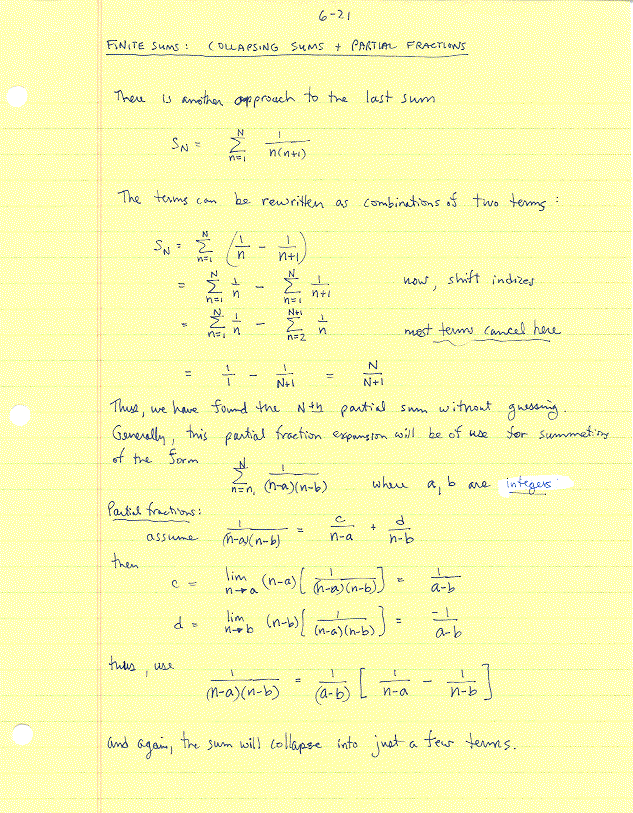 6-21
FINITE SUMS: COLLAPSING SUMS + PARTIAL FRACTIONS
There is another approach to the last sum
S_N = \sum_{n=1}^{N} \frac{1}{n(n+1)}
The terms can be rewritten as combinations of two terms:
S_N = \sum_{n=1}^{N} \left( \frac{1}{n} - \frac{1}{n+1} \right)
= \sum_{n=1}^{N} \frac{1}{n} - \sum_{n=1}^{N} \frac{1}{n+1} now, shift indizes
= \sum_{n=1}^{N} \frac{1}{n} - \sum_{n=2}^{N+1} \frac{1}{n} most terms cancel here
= \frac{1}{1} - \frac{1}{N+1} = \frac{N}{N+1}
Thus, we have found the Nth partial sum without guessing.
Generally, this partial fraction expansion will be of use for summations
of the form
\sum_{n=n_1}^{N} \frac{1}{(n-a)(n-b)} where a, b are integers
Partial fractions:
assume \frac{1}{(n-a)(n-b)} = \frac{c}{n-a} + \frac{d}{n-b}
then
c = \lim_{n→a} (n-a) \left[ \frac{1}{(n-a)(n-b)} \right] = \frac{1}{a-b}
d = \lim_{n→b} (n-b) \left[ \frac{1}{(n-a)(n-b)} \right] = \frac{-1}{a-b}
thus, use
\frac{1}{(n-a)(n-b)} = \frac{1}{(a-b)} \left[ \frac{1}{n-a} - \frac{1}{n-b} \right]
and again, the sum will collapse into just a few terms.